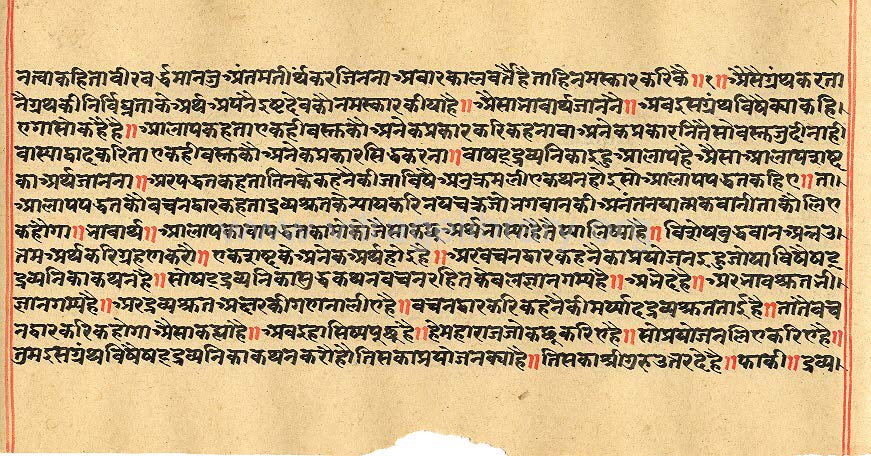 नत्वाकहितावीरवर्द्धमानजुअंतमतीर्थकरजिननाअवारकालवर्तैहैताहिनमस्कारकरिकै॥१॥अैसैग्रंथकरता
नैग्रंथकीनिर्विघ्नताकेअर्थअपनैइष्टदेवकौनमस्कारकीयाहै॥अैसाभावार्थजाननै॥अबइसग्रंथविषैक्याकहि।
एगासोकहैहै॥आलापकहताएकहीवस्तकौअनेकप्रकारकरिकहनावाअनेकप्रकारनितैसोवस्तजुदीनाही।
वास्याद्वादकरिताएकहीवस्तकौअनेकप्रकारसिद्धकरना॥वाषट्द्रव्यनिकाइहुआलापहैअैसाआलापशष्ट
काअर्थजानना॥अरपद्धतकहतातिनकेकहनैकीजाविषैअनुक्रमलीएकथनहोइसोआलापपद्धतकहिए॥ता।
आलापपद्धतकौवचनद्वारकहताद्रव्यश्रुतके
कहौगा॥भावार्थ॥आलाप
तमअर्थकरिग्रहणकरौ॥एकशष्टकेअनेकअर्थहोइहै॥अरवचनद्वारकहनैकाप्रयोजनइहुजोयाविषैषट्
द्रव्यनिकाकथनहै॥सोषट्द्रव्यनिकाशुद्धकथनवचनरहितकेवलज्ञानगम्यहै॥अभेदहै॥अरभावश्रुतभी।
ज्ञानगम्यहै॥अरद्रव्यश्रुतअक्षरकीगणनालीएहै॥वचनद्वारकरिकहनैकीमर्य्यादद्रव्यश्रुतताईहै॥तातैवच
नद्वारकरिकहोगाअैसाकह्याहै॥अबइहासिष्यपूछैहै॥हेमहाराजजोकछुकरिएहै॥सोप्रयोजनलिएकरिएहै॥
तुमइसग्रंथविषैषट्द्रव्यनिकाकथनकरौहौतिसकाप्रयोजनक्याहै॥तिसकाश्रीगुरुउतरदेहै॥फाकी॥द्रव्य।